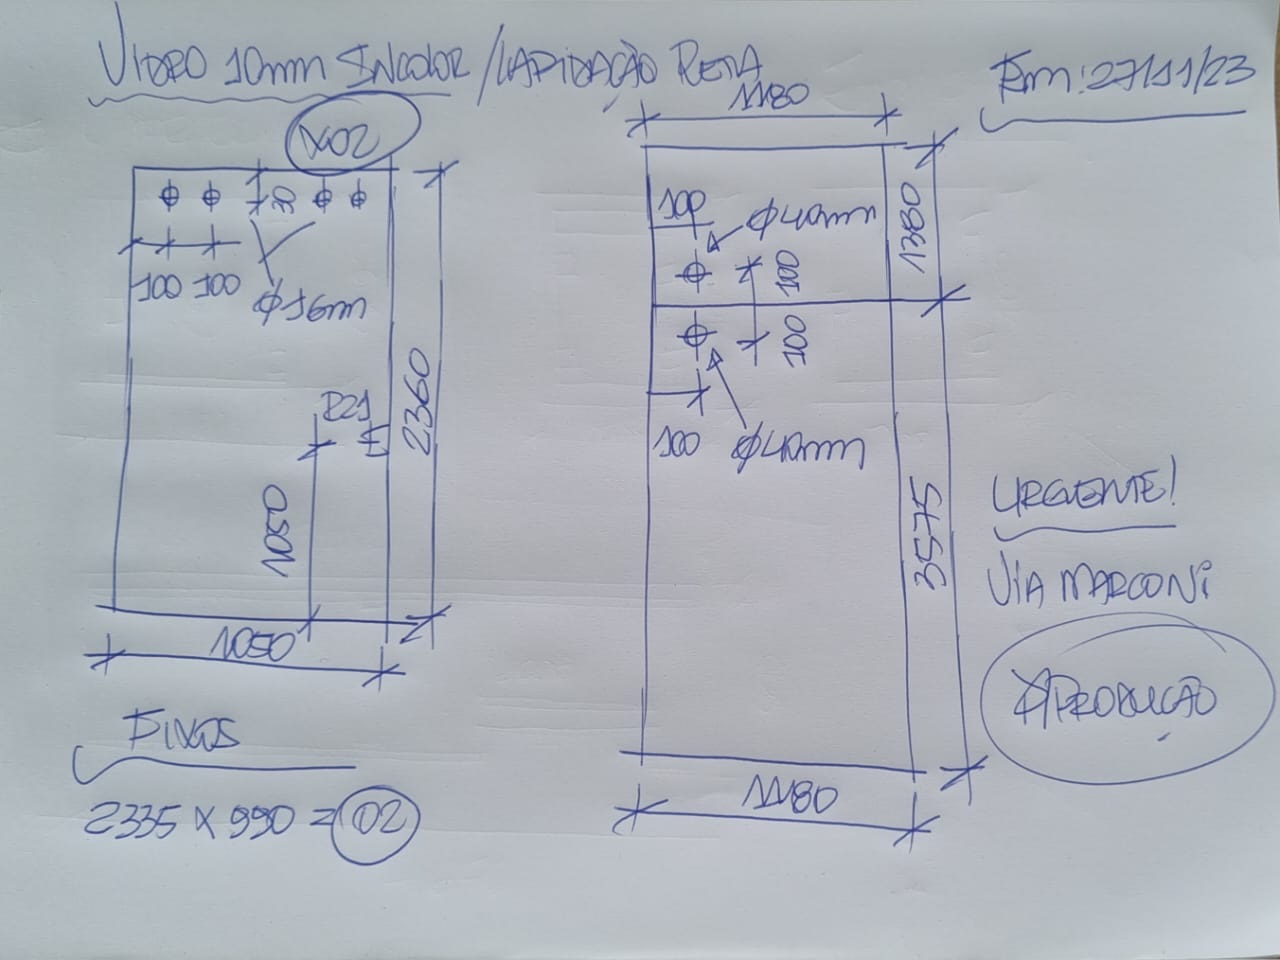 VIDRO 10mm INCOLOR / LAPIDAÇÃO RETA
Em: 27/11/23
X02
100 100
Ø16mm
R21
1050
2360
1050
FIXOS
2335 X 990 = 02
1180
100
Ø40mm
100
1380
100
100
Ø40mm
3575
1180
URGENTE!
VIA MARCONi
P/PRODUÇÃO